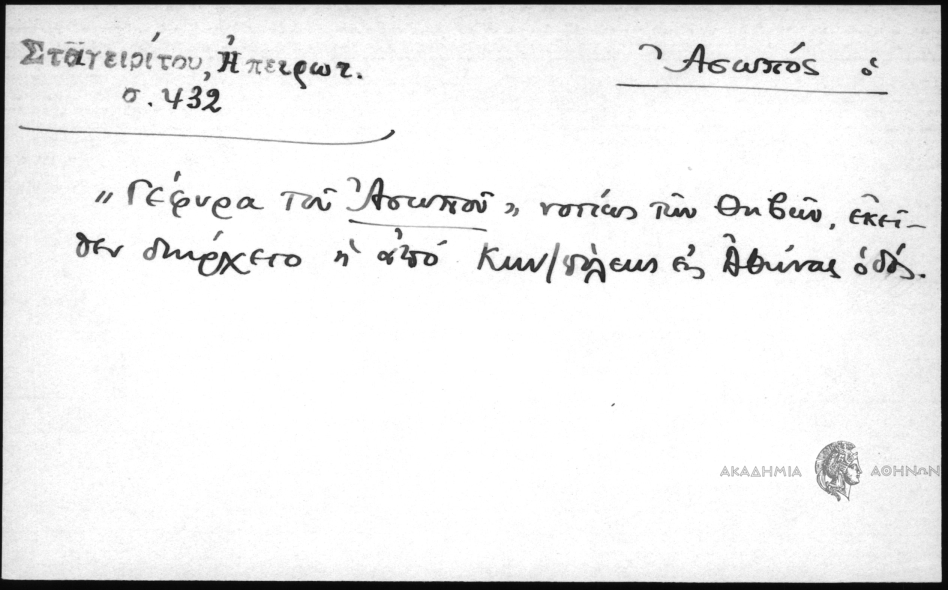 Σταγειρίτου, Ἠπειρωτ.
σ. 432
Ἀσωπός ὁ
„Γέφυρα τοῦ Ἀσωποῦ„ νοτίως τῶν Θηβῶν, ἐκεῖ-
θεν διήρχετο ἡ ἀπό Κων/πόλεως εἰς Ἀθήνας ὁδός.
ΑΚΑΔΗΜΙΑ ΑΘΗΝΩΝ